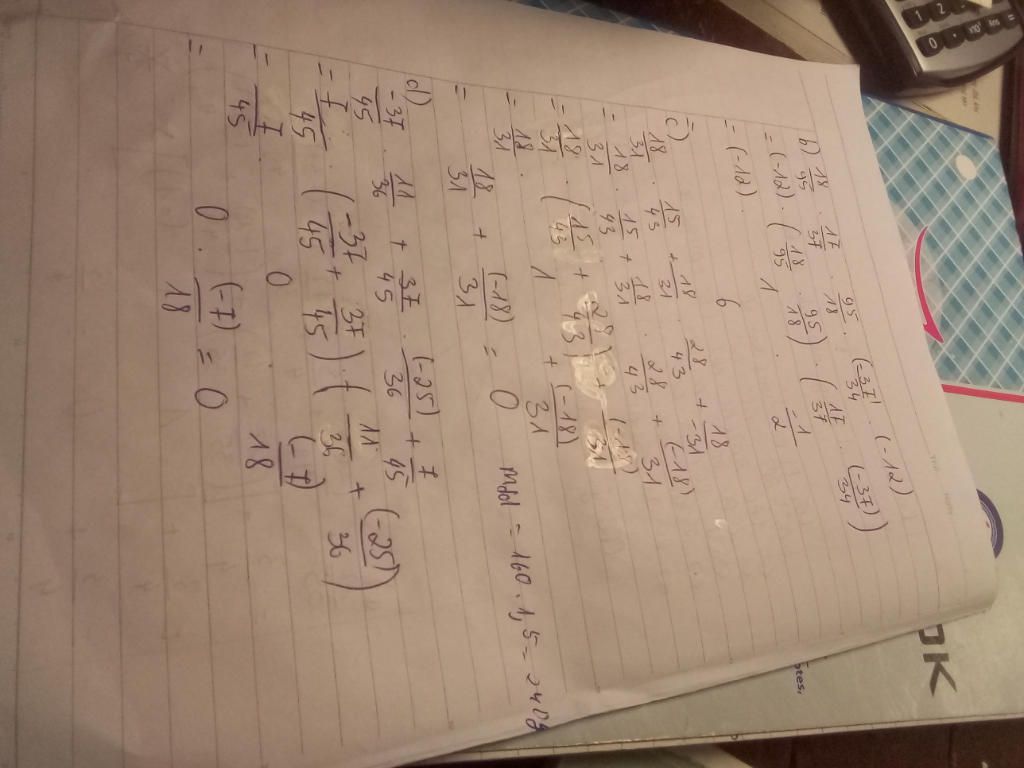 b) 18/45 . 17/37 . 95/18 . (-37)/34 . (-12)
= (-12) . (18/95 . 95/18) . (17/37 . (-37)/34)
= (-12) . 1 . -1/2
= 6
c) 18/31 . 15/43 + 18/31 . 28/43 + 18/-31
= 18/31 . 15/43 + 18/31 . 28/43 + (-18)/31
= 18/31 . (15/43 + 28/43) + (-18)/31
= 18/31 . 1 + (-18)/31
= 18/31 + (-18)/31 = 0
mbd = 160 . 1,5 = 240g
d) -37/45 . 11/36 + 37/45 . (-25)/36 + 7/45
= 7/45 . (-37/45 + 37/45) . (11/36 + (-25)/36)
= 7/45 . 0 . (-7)/18
= 0 . (-7)/18 = 0
OK
1 2
0